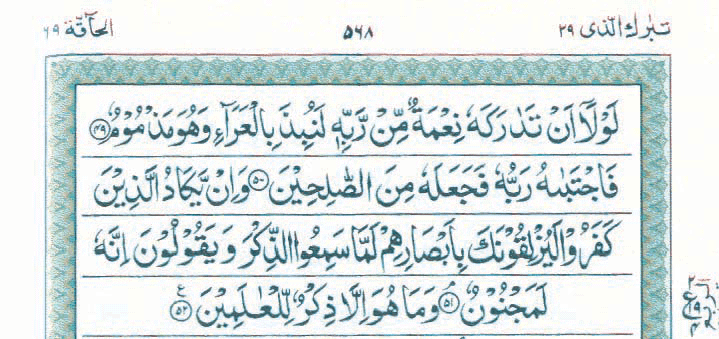 تبٰرك الّذی ۲۹ ۵۶۸ الحآقّة ۶۹
لَوْلَاۤ اَنْ تَدٰرَكَهٗ نِعْمَةٌ مِّنْ رَّبِّهٖ لَنُبِذَ بِالْعَرَآءِ وَهُوَ مَذْمُوْمٌ ۴۹
فَاجْتَبٰىهُ رَبُّهٗ فَجَعَلَهٗ مِنَ الصّٰلِحِيْنَ ۵۰ وَاِنْ يَّكَادُ الَّذِيْنَ
كَفَرُوْا لَيُزْلِقُوْنَكَ بِاَبْصَارِهِمْ لَمَّا سَمِعُوا الذِّكْرَ وَيَقُوْلُوْنَ اِنَّهٗ
لَمَجْنُوْنٌ ۘ۵۱ وَمَا هُوَ اِلَّا ذِكْرٌ لِّلْعٰلَمِيْنَ ۵۲ ع